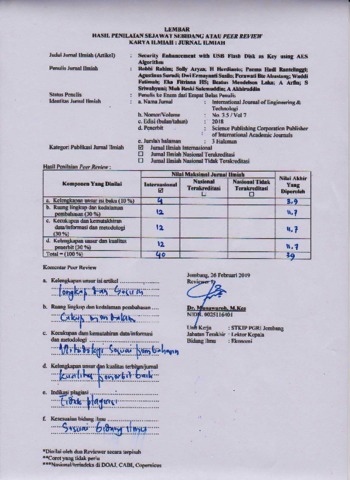 LEMBAR
HASIL PENILAIAN SEJAWAT SEBIDANG ATAU PEER REVIEW
KARYA ILMIAH : JURNAL ILMIAH
Judul Jurnal Ilmiah (Artikel) : Security Enhancement with USB Flash Disk as Key using AES
Algorithm
Penulis Jurnal Ilmiah : Robbi Rahim; Solly Aryza; H Herdianto;
Agustinus Dwi Ermayanti Susilo;
Fatimah; Eka Fitriana HS; A Arfin; S
Sriwahyuni;
Status Penulis : Penulis ke Enam dari Empat Belas Penulis
Identitas Jurnal Ilmiah : a. Nama Jurnal : International Journal of Engineering &
Technology
b. Nomor/Volume : No. 3.5 / Vol 7
c. Edisi (bulan/tahun) : 2018
d. Penerbit : Science Publishing Corporation Publisher
of International Academic Journals
e. Jumlah halaman : 3 Halaman
Kategori Publikasi Jurnal Ilmiah : ☑ Jurnal Ilmiah Internasional
☐ Jurnal Ilmiah Nasional Terakreditasi
☐ Jurnal Ilmiah Nasional Tidak Terakreditasi
Hasil Penilaian Peer Review :
Komponen Yang Dinilai
Nilai Maksimal Jurnal Ilmiah
Internasional ☑
Nasional Terakreditasi ☐
Nasional Tidak Terakreditasi ☐
Nilai Akhir Yang Diperoleh
a. Kelengkapan unsur isi buku (10 %) 4 3.9
b. Ruang lingkup dan kedalaman
pembahasan (30 %) 12 11.7
c. Kecukupan dan kemutakhiran
data/informasi dan metodologi
(30 %) 12 11.7
d. Kelengkapan unsur dan kualitas
penerbit (30 %) 12 11.7
Total = (100 %) 40 39
Komentar Peer Review
Jombang, 26 Februari 2019
Reviewer
a. Kelengkapan unsur isi artikel
Lengkap dan Sesuai
Dr. Munawaroh, M.Kes
NIDN. 0025116401
b. Ruang lingkup dan kedalaman pembahasan
Cukup mendalam
Unit Kerja : STKIP PGRI Jombang
Jabatan Terakhir : Lektor Kepala
Bidang Ilmu : Ekonomi
c. Kecukupan dan kemutakhiran data/informasi
dan metodologi
Metodologi Sesuai pembahasan
d. Kelengkapan unsur dan kualitas terbitan/jurnal
kualitas penerbit baik
e. Indikasi plagiasi
Tidak plagiasi
f. Kesesuaian bidang ilmu
Sesuai bidang ilmu
*Dinilai oleh dua Reviewer secara terpisah
**Coret yang tidak perlu
***Nasional/terindeks di DOAJ, CABI, Copernicus